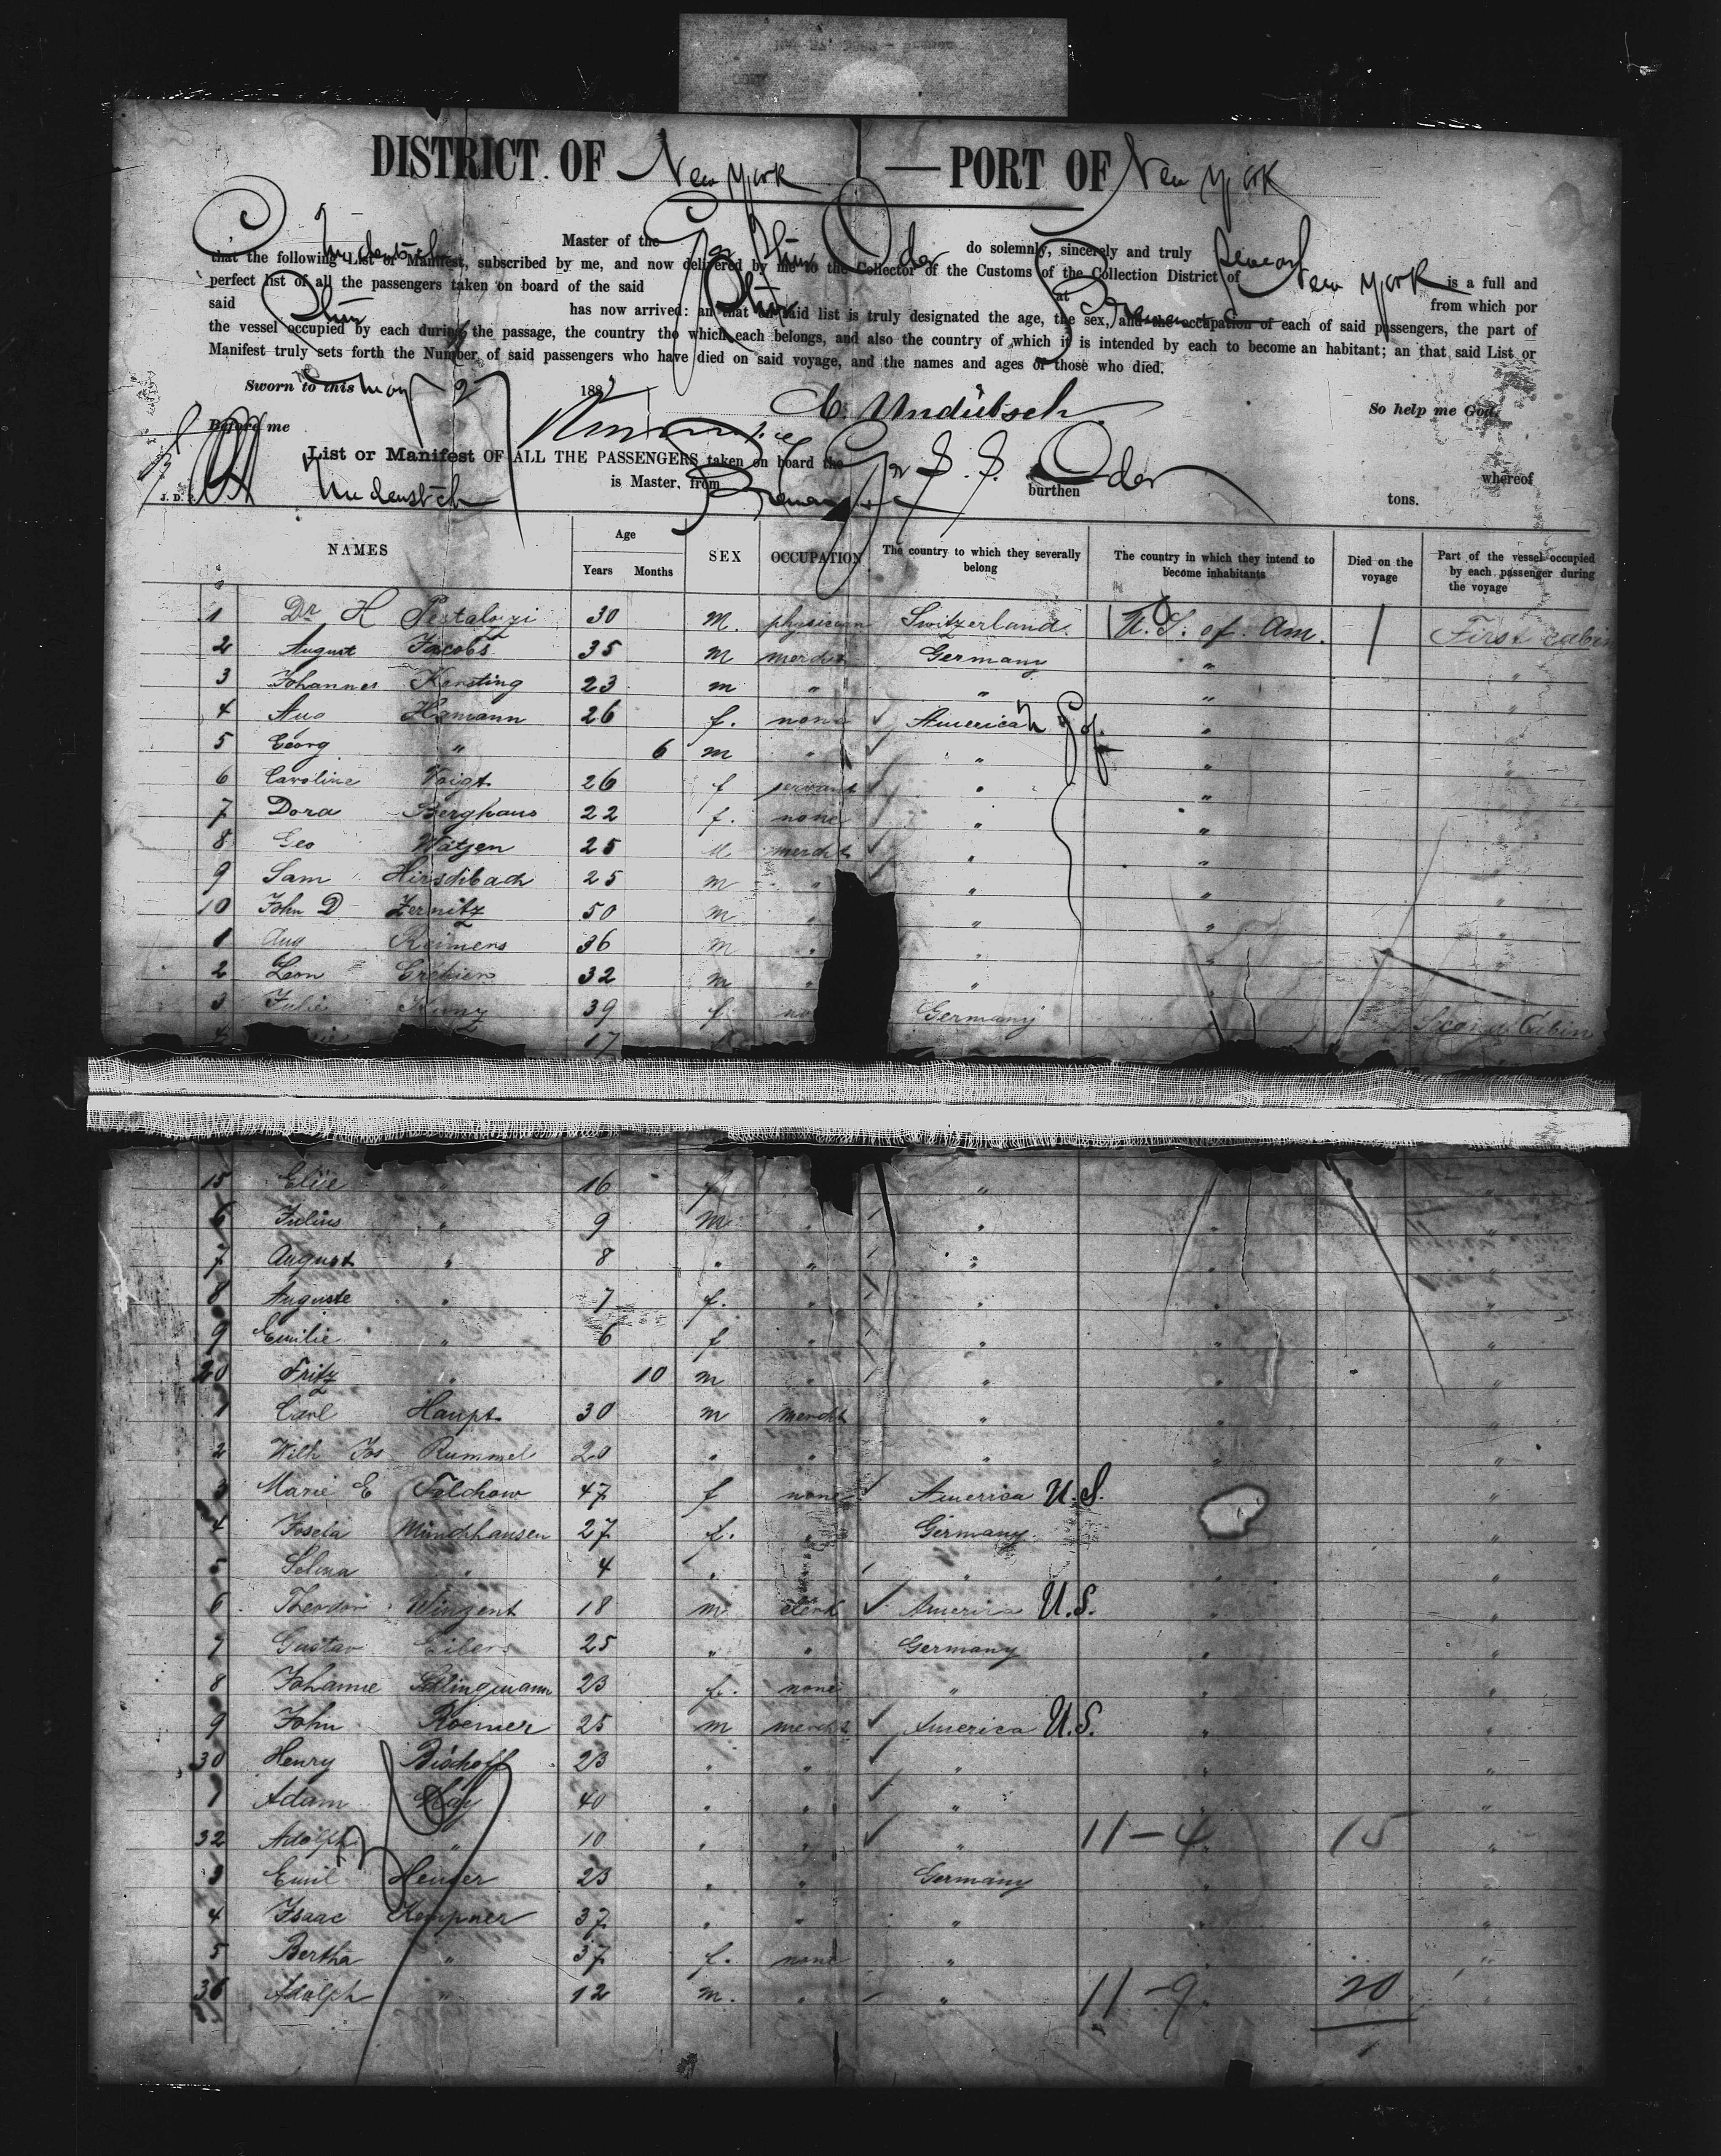 DISTRICT OF New York — PORT OF New York
C. Undeutsch Master of the Ger Stm Oder do solemnly, sincerely and truly swear
that the following List or Manifest, subscribed by me, and now delivered by me to the Collector of the Customs of the Collection District of New York is a full and
perfect list of all the passengers taken on board of the said Stm at Bremen from which por
said Stm has now arrived: an that on said list is truly designated the age, the sex, and the occupation of each of said passengers, the part of
the vessel occupied by each during the passage, the country tho which each belongs, and also the country of which it is intended by each to become an habitant; an that said List or
Manifest truly sets forth the Number of said passengers who have died on said voyage, and the names and ages of those who died.
Sworn to this May 27 188 C. Undütsch So help me God.
Before me
List or Manifest OF ALL THE PASSENGERS taken on board the Ger S. S. Oder whereof
J. D. Undeutsch is Master, from Bremen burthen tons.
NAMES Age Years Months SEX OCCUPATION The country to which they severally belong The country in which they intend to become inhabitants Died on the voyage Part of the vessel occupied by each passenger during the voyage
1 Dr H Pestalozzi 30 M. physician Switzerland U. S. of Am. First cabin
2 August Jacobs 35 m mercht Germany " "
3 Johannes Kersting 23 m " " " "
4 Hamann 26 f. none American " "
5 Georg " 6 m " " " "
6 Caroline Voigt 26 f servant " " "
7 Dora Berghaus 22 f. none " " "
8 Geo Wätjen 25 M mercht " " "
9 Sam Hirschbach 25 m " " " "
10 John D Zernitz 50 m " " " "
1 Aug Reimers 36 m " " " "
2 Leon 32 m " " "
3 Julie Kunz 39 f no Germany Second Cabin
4 17
15 Elise " 16 f " " "
6 Julius " 9 m " " " "
7 August " 8 " " " " "
8 Auguste " 7 f. " " " "
9 Emilie " 6 f " " " "
20 Fritz " 10 m " " " "
1 Carl Haupt 30 m mercht " " "
2 Wilh Jos Rummel 20 " " " " "
3 Marie E Falchow 47 f none America U.S. "
4 Josefa Münchhausen 27 f. " Germany " "
5 Selma " 4 " " " "
6 Theodor Winzent 18 m clerk America U.S. " "
7 Gustav Eilers 25 " " Germany " "
8 Johanne Schlingmann 23 f. none " " "
9 John Roemer 25 m mercht America U.S. " "
30 Henry Bischoff 23 " " " " "
1 Adam May 40 " " " " "
32 Adolph " 10 " " " 11-4 15 "
3 Emil Heuser 23 " " Germany " "
4 Isaac Kempner 37 " " " " "
5 Bertha " 37 f. none " " "
36 Adolph " 12 m. " " 11-9 20 "